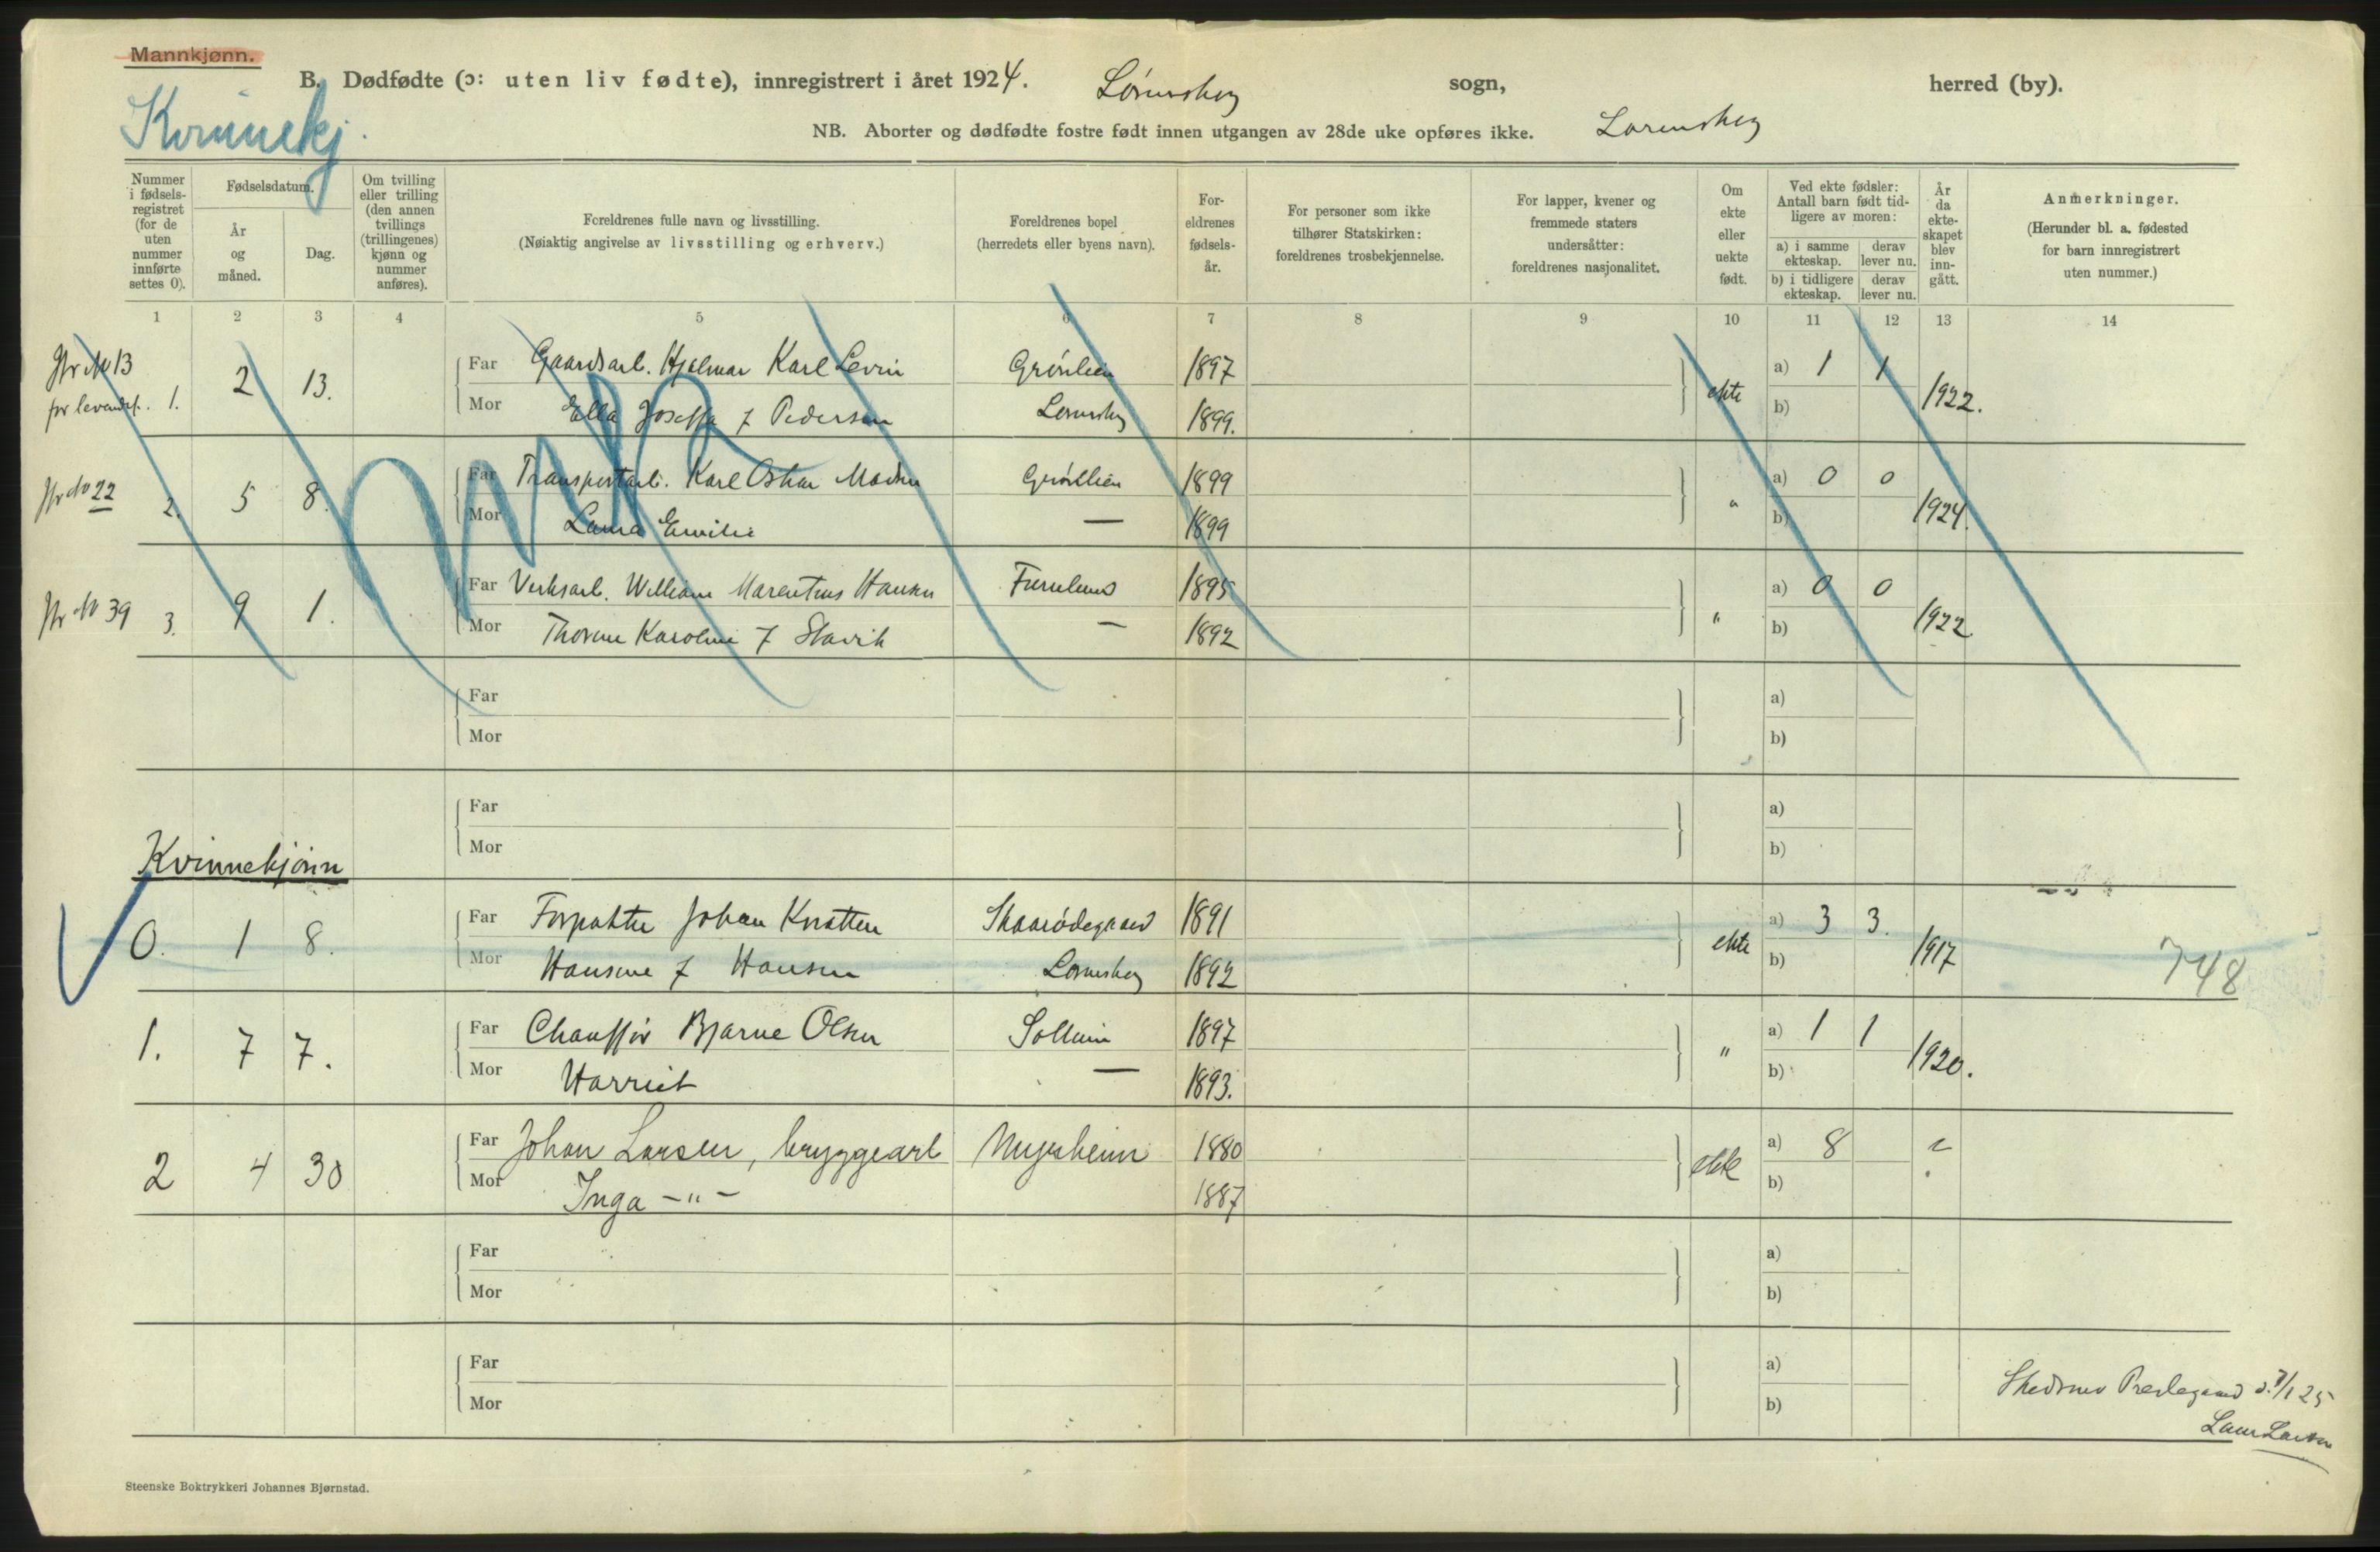 Mannkjønn.
B. Dødfødte (ɔ: uten liv fødte), innregistrert i året 1924. Lørenskog sogn, herred (by).
Kvinnekj.
NB. Aborter og dødfødte fostre født innen utgangen av 28de uke opføres ikke. Lørenskog
Nummer i fødsels-registret (for de uten nummer innførte settes 0).
Fødselsdatum.
År og måned.
Dag.
Om tvilling eller trilling (den annen tvillings (trillingenes) kjønn og nummer anføres).
Foreldrenes fulle navn og livsstilling.
(Nøiaktig angivelse av livsstilling og erhverv.)
Foreldrenes bopel
(herredets eller byens navn).
For-eldrenes fødsels-år.
For personer som ikke tilhører Statskirken: foreldrenes trosbekjennelse.
For lapper, kvener og fremmede staters undersåtter: foreldrenes nasjonalitet.
Om ekte eller uekte født.
Ved ekte fødsler: Antall barn født tid-ligere av moren:
a) i samme ekteskap. derav lever nu.
b) i tidligere ekteskap. derav lever nu.
År da ekte-skapet blev inn-gått.
Anmerkninger.
(Herunder bl. a. fødested for barn innregistrert uten nummer.)
1 2 3 4 5 6 7 8 9 10 11 12 13 14
No 13 1. 2 13. Far Gaardsarb. Hjalmar Karl Levin Grønlien 1897 ekte a) 1 1 1922.
Mor Ella Josefa f Pedersen Lørenskog 1899. b)
No 22 2. 5 8. Far Transportarb. Karl Oskar Madsen Grønlien 1899 " a) 0 0 1924.
Mor Laura Emilie — 1899 b)
No 39 3. 9 1. Far Verksarb. William Marentius Hansen 1895 " a) 0 0 1922.
Mor Karoline f Slavik — 1892 b)
Far a)
Mor b)
Far a)
Mor b)
Kvinnekjønn
0. 1 8. Far Forpakter Johan Knatten Skaarødegaard 1891 ekte a) 3 3. 1917 748
Mor Hansine f Hansen Lørenskog 1892 b)
1. 7 7. Far Chauffør Bjarne Olsen Solheim 1897 " a) 1 1 1920.
Mor Harriet — 1893. b)
2 4 30 Far Johan Larsen, bryggearb Myrheim 1880 ekte a) 8 ?
Mor Inga —"— 1887 b)
Far a)
Mor b)
Far a)
Mor b)
Skedsmo Prestegaard 25
Steenske Boktrykkeri Johannes Bjørnstad.